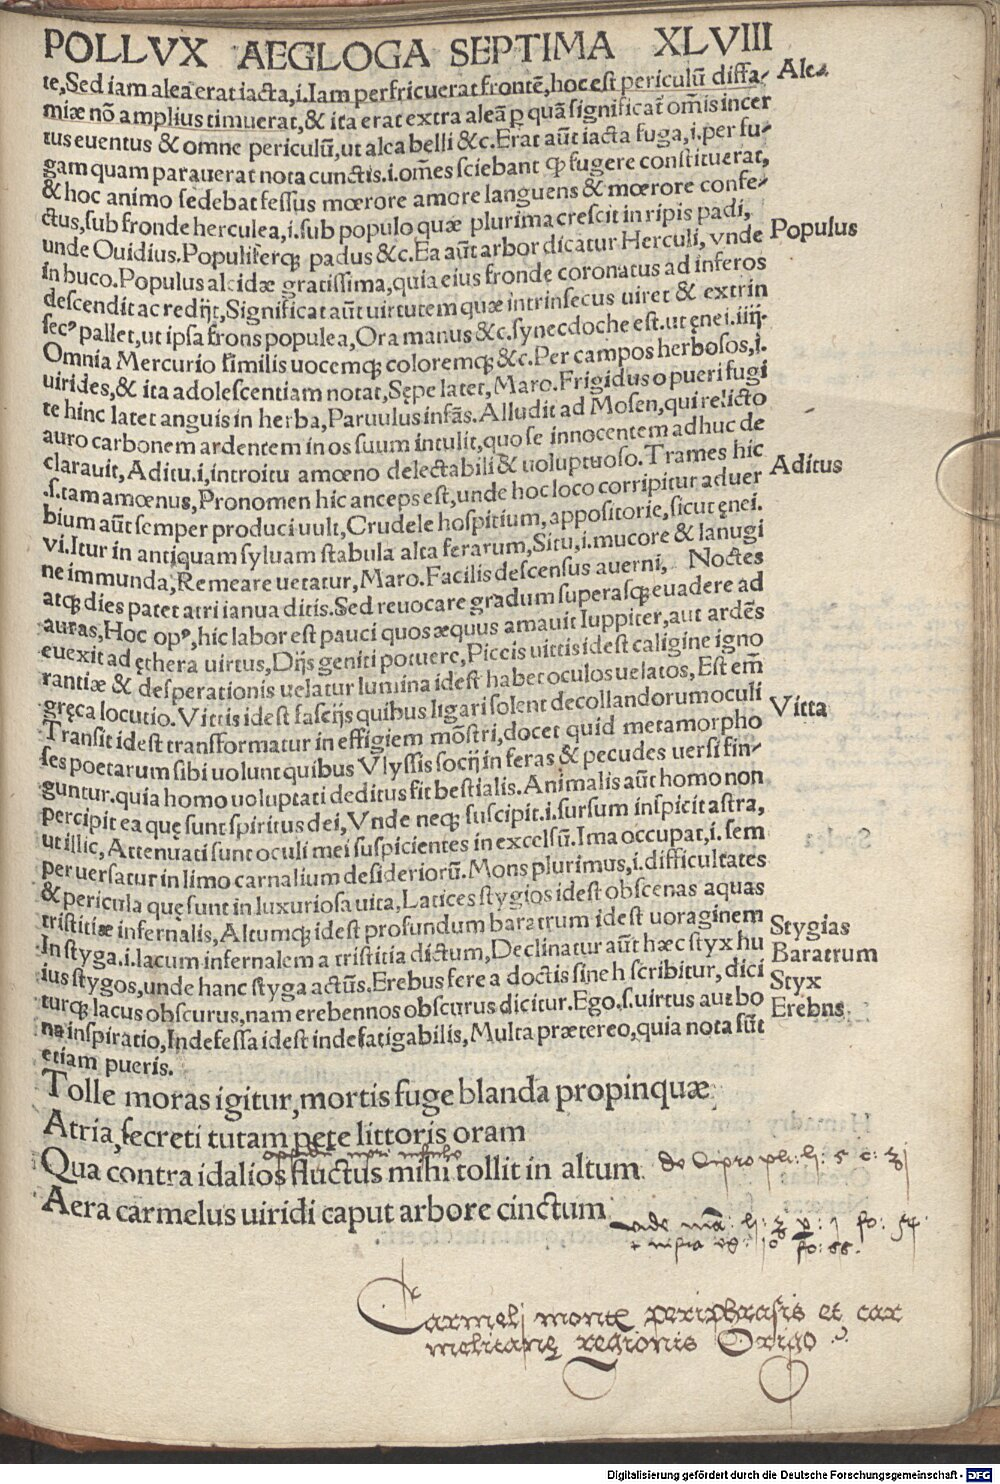 POLLVX AEGLOGA SEPTIMA XLVIII
te,Sed iam alea erat iacta,i.Iam perfricuerat frontē,hoc est periculū diffa- Alea
miæ nō amplius timuerat,& ita erat extra aleā ꝑ quā significat̄ om̄is incer
tus euentus & omne periculū,ut alea belli &c.Erat aūt iacta fuga,i.per fu-
gam quam parauerat nota cunctis.i.om̄es sciebant ꝙ fugere constituerat,
& hoc animo sedebat fessus mœrore amore languens & mœrore confe-
ctus,sub fronde herculea,i.sub populo quæ plurima crescit in ripis padi,
unde Ouidius.Populiferꝗ padus &c.Ea aūt arbor dicatur Herculi, vnde Populus
in buco.Populus alcidæ gratissima,quia eius fronde coronatus ad inferos
descendit ac redijt,Significat aūt uirtutem quæ intrinsecus uiret & extrin
secꝰ pallet,ut ipsa frons populea,Ora manus &c.synecdoche est.ut ęnei.iiij.
Omnia Mercurio similis uocemꝗ coloremꝗ &c.Per campos herbosos,i.
uirides,& ita adolescentiam notat,Sępe latet,Maro.Frigidus o pueri fugi
te hinc latet anguis in herba,Paruulus infās.Alludit ad Mosen,qui relicto
auro carbonem ardentem in os suum intulit,quo se innocentem adhuc de
clarauit,Aditu.i,introitu amœno delectabili & uoluptuoso.Trames hic
.s.tam amœnus,Pronomen hic anceps est,unde hoc loco corripitur aduer Aditus
bium aūt semper produci uult,Crudele hospitium,appositorie,sicut ęnei.
vi.Itur in antiquam syluam stabula alta ferarum,Situ,i.mucore & lanugi
ne immunda,Remeare uetatur,Maro.Facilis descensus auerni, Noctes
atꝗ dies patet atri ianua ditis.Sed reuocare gradum superasꝗ euadere ad
auras,Hoc opꝰ,hic labor est pauci quos æquus amauit Iuppiter,aut ardēs
euexit ad ęthera uirtus,Dijs geniti potuere,Piceis uittis idest caligine igno
rantiæ & desperationis uelatur lumina idest habet oculos uelatos,Est em̄
gręca locutio.Vittis idest fascijs quibus ligari solent decollandorum oculi Vitta
Transit idest transformatur in effigiem mōstri,docet quid metamorpho
ses poetarum sibi uolunt quibus Vlyssis socij in feras & pecudes uersi fin-
guntur.quia homo uoluptati deditus fit bestialis.Animalis aūt homo non
percipit ea quę sunt spiritus dei,Vnde neqꝫ suscipit.i.sursum inspicit astra,
ut illic,Attenuati sunt oculi mei suspicientes in excelsū.Ima occupat,i.sem
per uersatur in limo carnalium desideriorū.Mons plurimus,i.difficultates
& pericula quę sunt in luxuriosa uita,Latices stygios idest obscenas aquas
tristitiæ infernalis,Altumꝗ idest profundum baratrum idest uoraginem Stygias
In styga.i.lacum infernalem a tristitia dictum,Declinatur aūt hæc styx hu Baratrum
ius stygos,unde hanc styga actūs.Erebus fere a doctis sine h scribitur, dici Styx
turꝗ lacus obscurus,nam erebennos obscurus dicitur.Ego.s.uirtus aut bo Erebns
na inspiratio,Indefessa idest indefatigabilis,Multa prætereo,quia nota sūt
etiam pueris.
Tolle moras igitur,mortis fuge blanda propinquæ
Atria,secreti tutam pete littoris oram
Qua contra idalios fluctus mihi tollit in altum de Cipro pli: li: 5 c: 
Aera carmelus uiridi caput arbore cinctum
Carmeli montꝭ periphrasis et car
melitanę regionis Origo
Digitalisierung gefördert durch die Deutsche Forschungsgemeinschaft - DFG